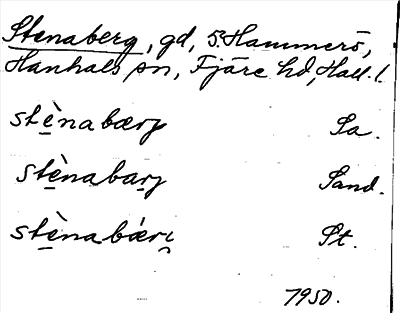 Stenaberg, gd, S. Hammerö,
Hanhals sn, Fjäre hd, Hall. l.
stè̠nabærj Sa.
stè̠nabarj Sand.
stè̠nabærj St.
1950.